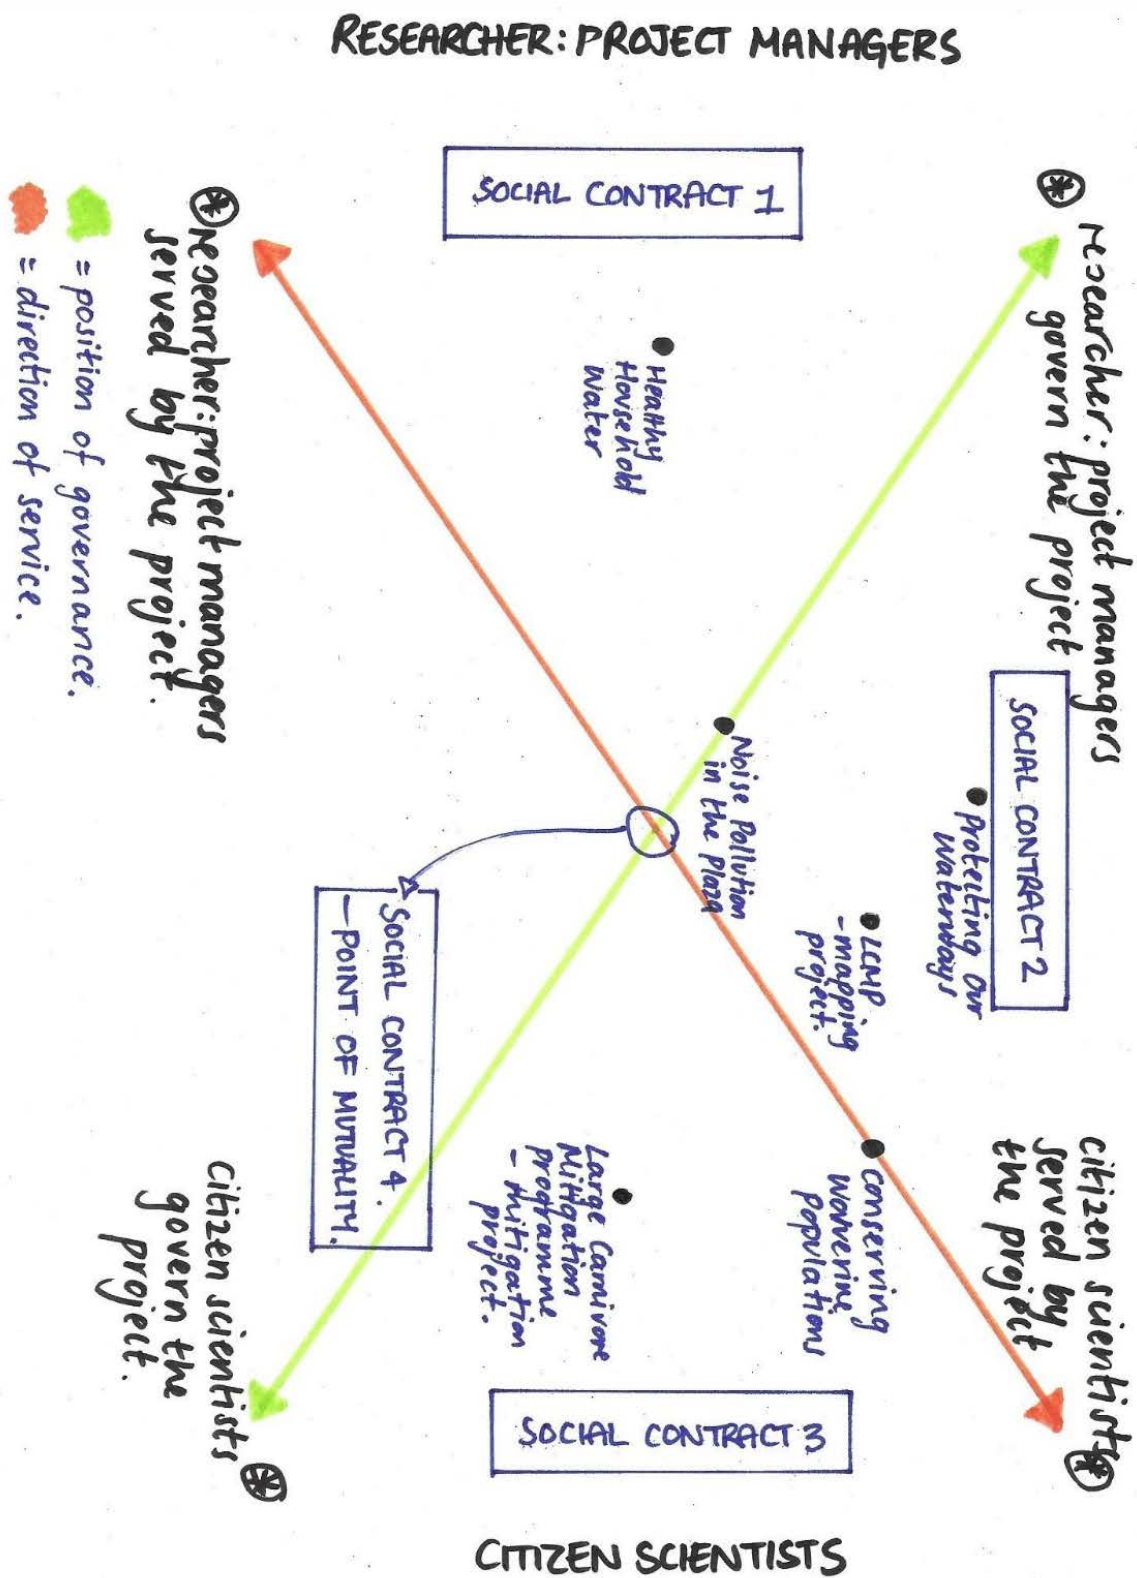 RESEARCHER: PROJECT MANAGERS
SOCIAL CONTRACT 1
researcher: project managers
govern the project
researcher: project managers
served by the project.
= position of governance.
= direction of service.
Healthy
Household
Water
SOCIAL CONTRACT 2
Protecting our
Waterways
Noise Pollution
in the Plaza
LCMP
- mapping
project.
SOCIAL CONTRACT 4.
- POINT OF MUTUALITY.
Conserving
wolverine
populations
Large Carnivore
Mitigation
programme
- mitigation
project.
citizen scientists
served by
the project
citizen scientists
govern the
project.
SOCIAL CONTRACT 3
CITIZEN SCIENTISTS